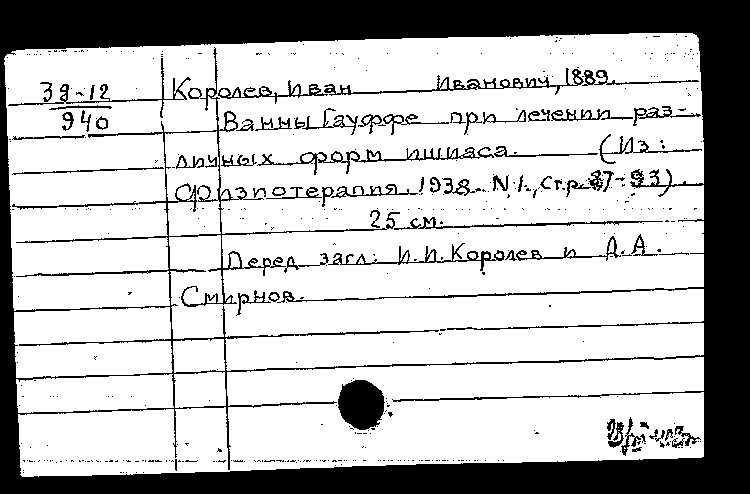 39-12
940
Королев, Иван Иванович, 1889.
Ванны Гауффе при лечении раз-
личных форм ишиаса. (Из:
Физиотерапия 1938. N 1., Стр. 87-93).
25 см.
Перед загл: И.И. Королев и Д.А.
Смирнов.